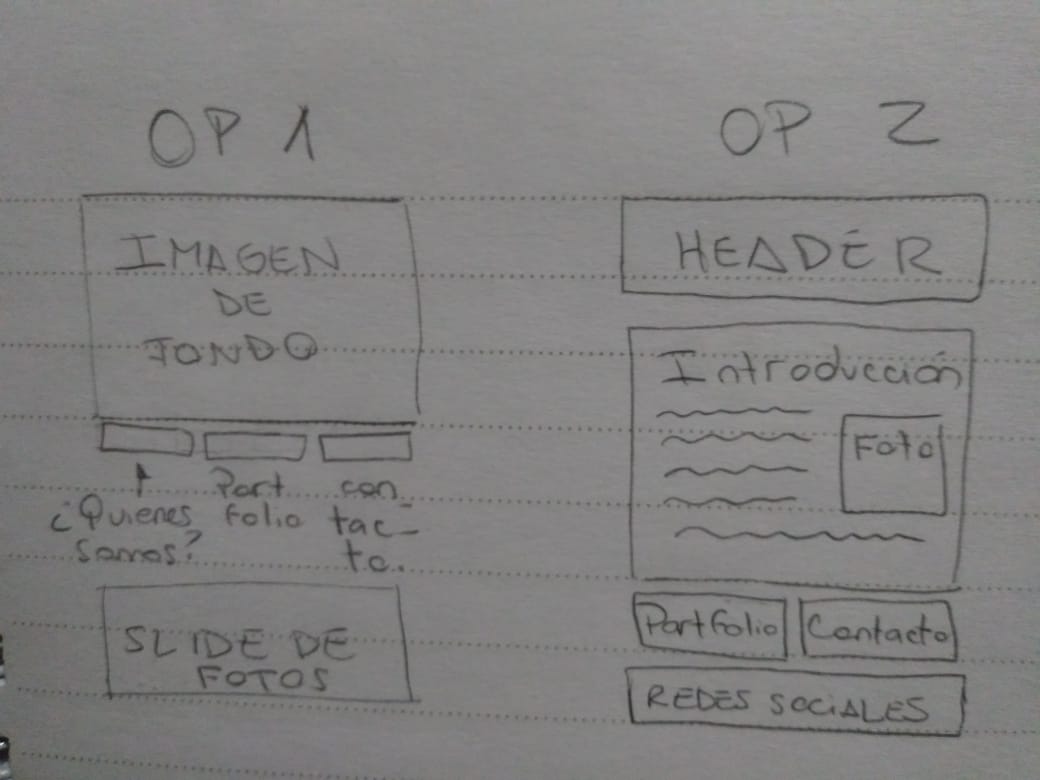 OP 1
IMAGEN
DE
FONDO
¿Quienes
somos?
Port
folio
con
tac-
to.
SLIDE DE
FOTOS
OP 2
HEADER
Introducción
Foto
Portfolio
Contacto
REDES SOCIALES